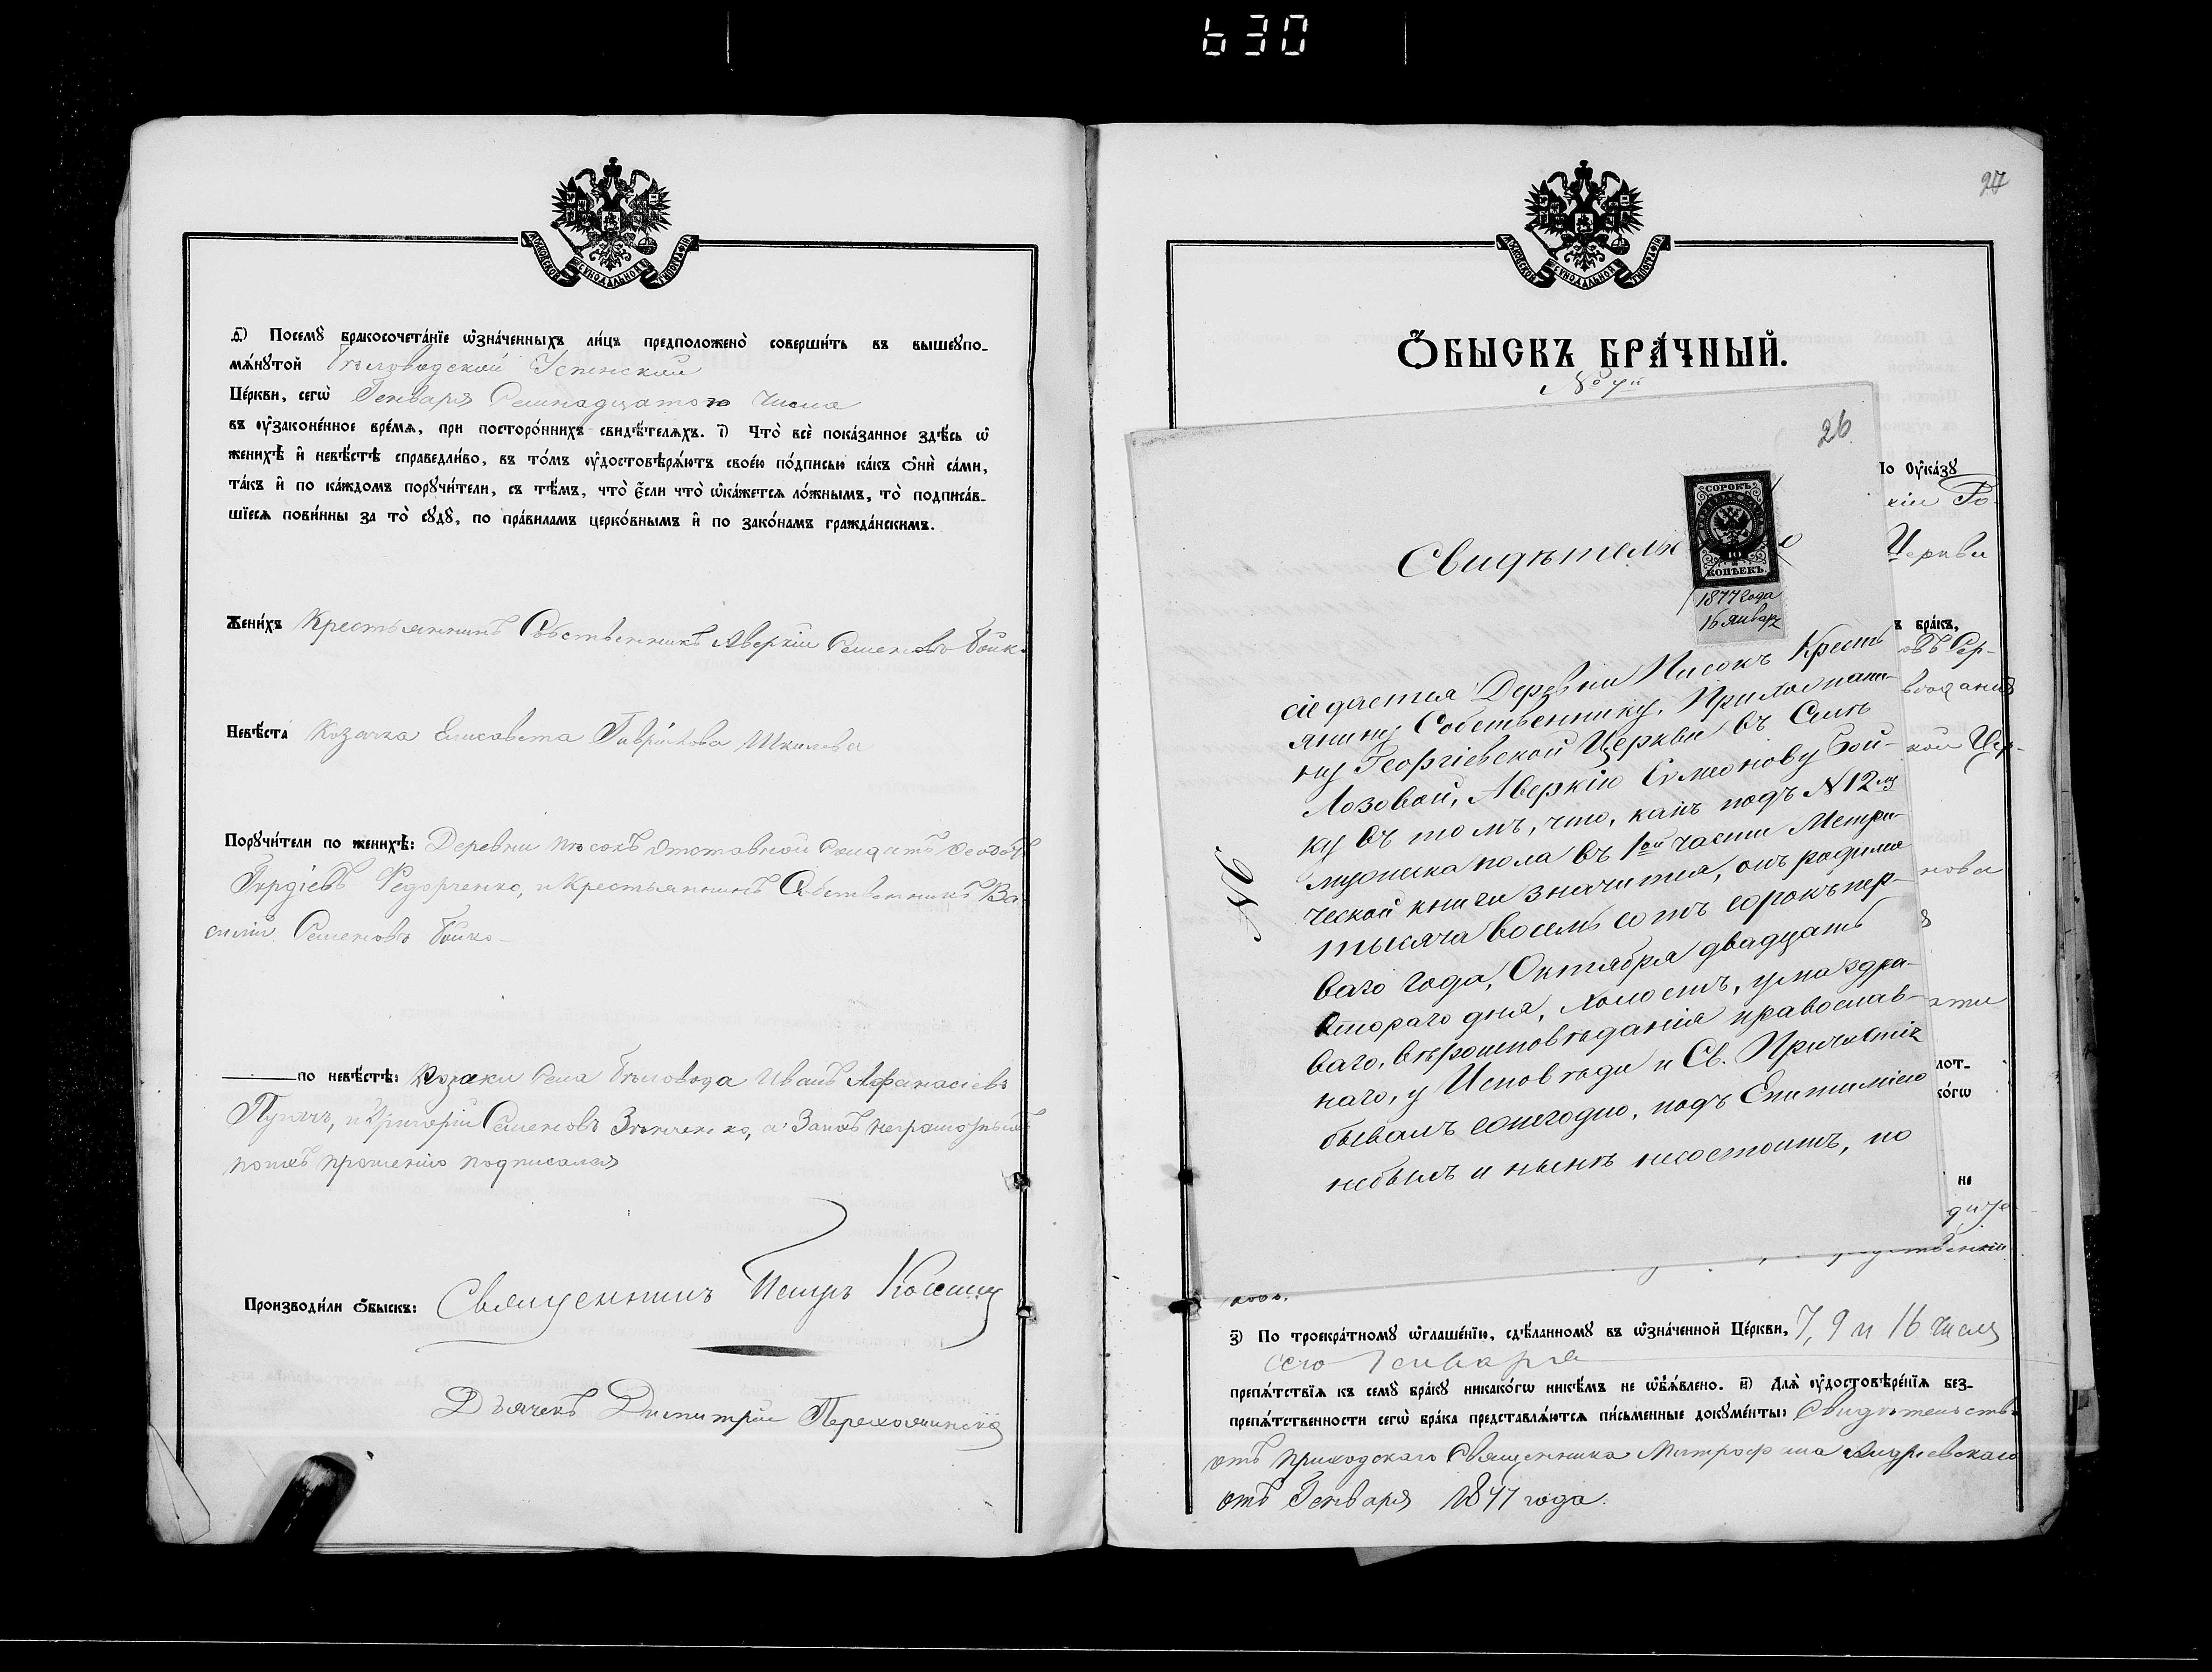 630
МОСКОВСКОЙ СѴНОДАЛЬНОЙ ТИПОГРАФІИ
д҃) Посемꙋ бракосочета́нїе ѡ҆зна́ченныхъ ли́цъ предположено̀ соверши́ть въ вышеꙋпо-
мѧ́нꙋтой Бѣловодской Успенской
Це́ркви, сегѡ̀ Генваря Семнадцатого числа
въ ᲂу҆зако́не́нное вре́мѧ, при посторо́ннихъ свидѣ́телѧхъ. і҃) Что̀ всѐ пока́занное здѣ́сь ѡ҆
женихѣ̀ и҆ невѣ́стѣ справедли́во, въ то́мъ ᲂу҆достовѣрѧ́ютъ свое́ю по́дписью ка́къ ѻ҆нѝ са́ми,
та́къ и҆ по ка́ждомъ порꙋчи́тели, съ тѣ́мъ, что̀ є҆́сли что̀ ѡ҆ка́жетсѧ ло́жнымъ, то̀ подписа́в-
шїесѧ пови́нны за то̀ сꙋдꙋ̀, по пра́виламъ церко́внымъ и҆ по зако́намъ гражда́нскимъ.
Жени́хъ Крестьянинъ Собственникъ Аверкій Семеновъ Бойк.
Невѣ́ста Козачка Елисавета Гаврилова Шкилева
Порꙋчи́тели по женихѣ̀: Деревни Пѣсокъ Отставной Солдатъ Феодотъ
Гордіевъ Федорченко, и Крестьянинъ Собственникъ Ва-
силій Семеновъ Бойко
по невѣ́стѣ: Козаки Села Бѣловода Иванъ Афанасіевъ
Пугачъ, и Григорій Семеновъ Зѣнченко, а за нихъ неграмотныхъ
по ихъ прошенію подписался
Производи́ли ѻ҆́быскъ: Священникъ Петръ
Дьячекъ Димитрій
27
МОСКОВСКОЙ СѴНОДАЛЬНОЙ ТИПОГРАФІИ
Ѻ҆́БЫСКЪ БРА́ЧНЫЙ.
26
по Оу҆ка́зꙋ
кіи Ро-
Церкви
ъ бра́къ,
овъ Сер-
кой Цер-
нова
СОРОКЪ
40
КОПѢЕКЪ.
1877 года
16 Январ
Свидѣтельство
сіе дается Деревни Писокъ Кресть
янину Собственнику, Прихожани-
ну Георгіевской Церкви въ Селѣ
Лозовой, Аверкію Симеонову Бой-
ку въ томъ, что, какъ подъ N 12 мъ
мужеска пола въ 1ой части Метри-
ческой книги значится, онъ родился
тысяча восемь сотъ сорокъ пер-
ваго года, Октября двадцать
втораго дня, холостъ, ума здра-
ваго, вѣроисповѣданія православ-
наго, у Исповѣди и Св. Причастія
бывалъ ежегодно, подъ Епитиміею
небылъ и нынѣ несостоитъ, по
№
лот-
ко́гѡ
не
з҃) По троекра́тномꙋ ѡ҆глаше́нїю, сдѣ́ланномꙋ въ ѡ҆зна́ченной Це́ркви, 7, 9 и 16 числъ
сего Генваря
препѧ́тствїѧ къ семꙋ̀ бра́кꙋ никако́гѡ никѣ́мъ не ѡ҆б̾ѧ́влено. и҃) Длѧ̀ ᲂу҆достовѣре́нїѧ без-
препѧ́тственности сегѡ̀ бра́ка представлѧ́ютсѧ пи́сьменные докꙋме́нты: Свидѣтельство
отъ приходскаго Священника Митрофана
отъ Генваря 1877 года.